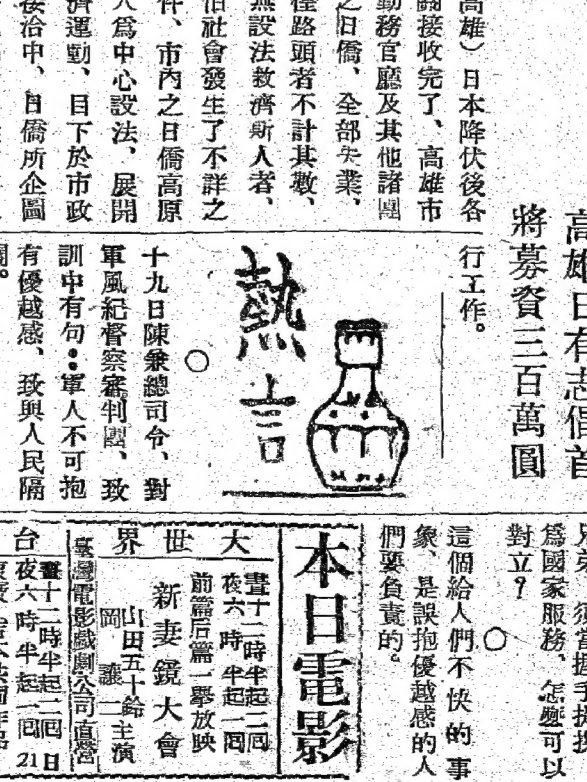 高雄日有志倡首
將募資三百萬圓
高雄）日本降伏後各
接收完了、高雄市
勤務官廳及其他諸團
之日僑、全部失業、
路頭者不計其數、
無設法救濟斯人者、
社會發生了不詳之
件、市內之日僑高原
人爲中心設法、展開
濟運動、目下於市政
接洽中、日僑所企圖
行工作。
熱言
十九日陳兼總司令、對
軍風紀督察審判團、致
訓中有句：軍人不可抱
有優越感、致與人民隔
閡。
○
爲國家服務、怎麼可以
對立？
○
這個給人們不快的事
象、是誤抱優越感的人
們要負責的。
本日電影
大世界
晝十二時半起二囘
夜六時半起一囘
前篇后篇一舉放映
新妻鏡大會
山田五十鈴
岡讓二
主演
臺灣電影戲劇公司直營
台
晝十二時半起二囘
夜六時半起一囘
日
21